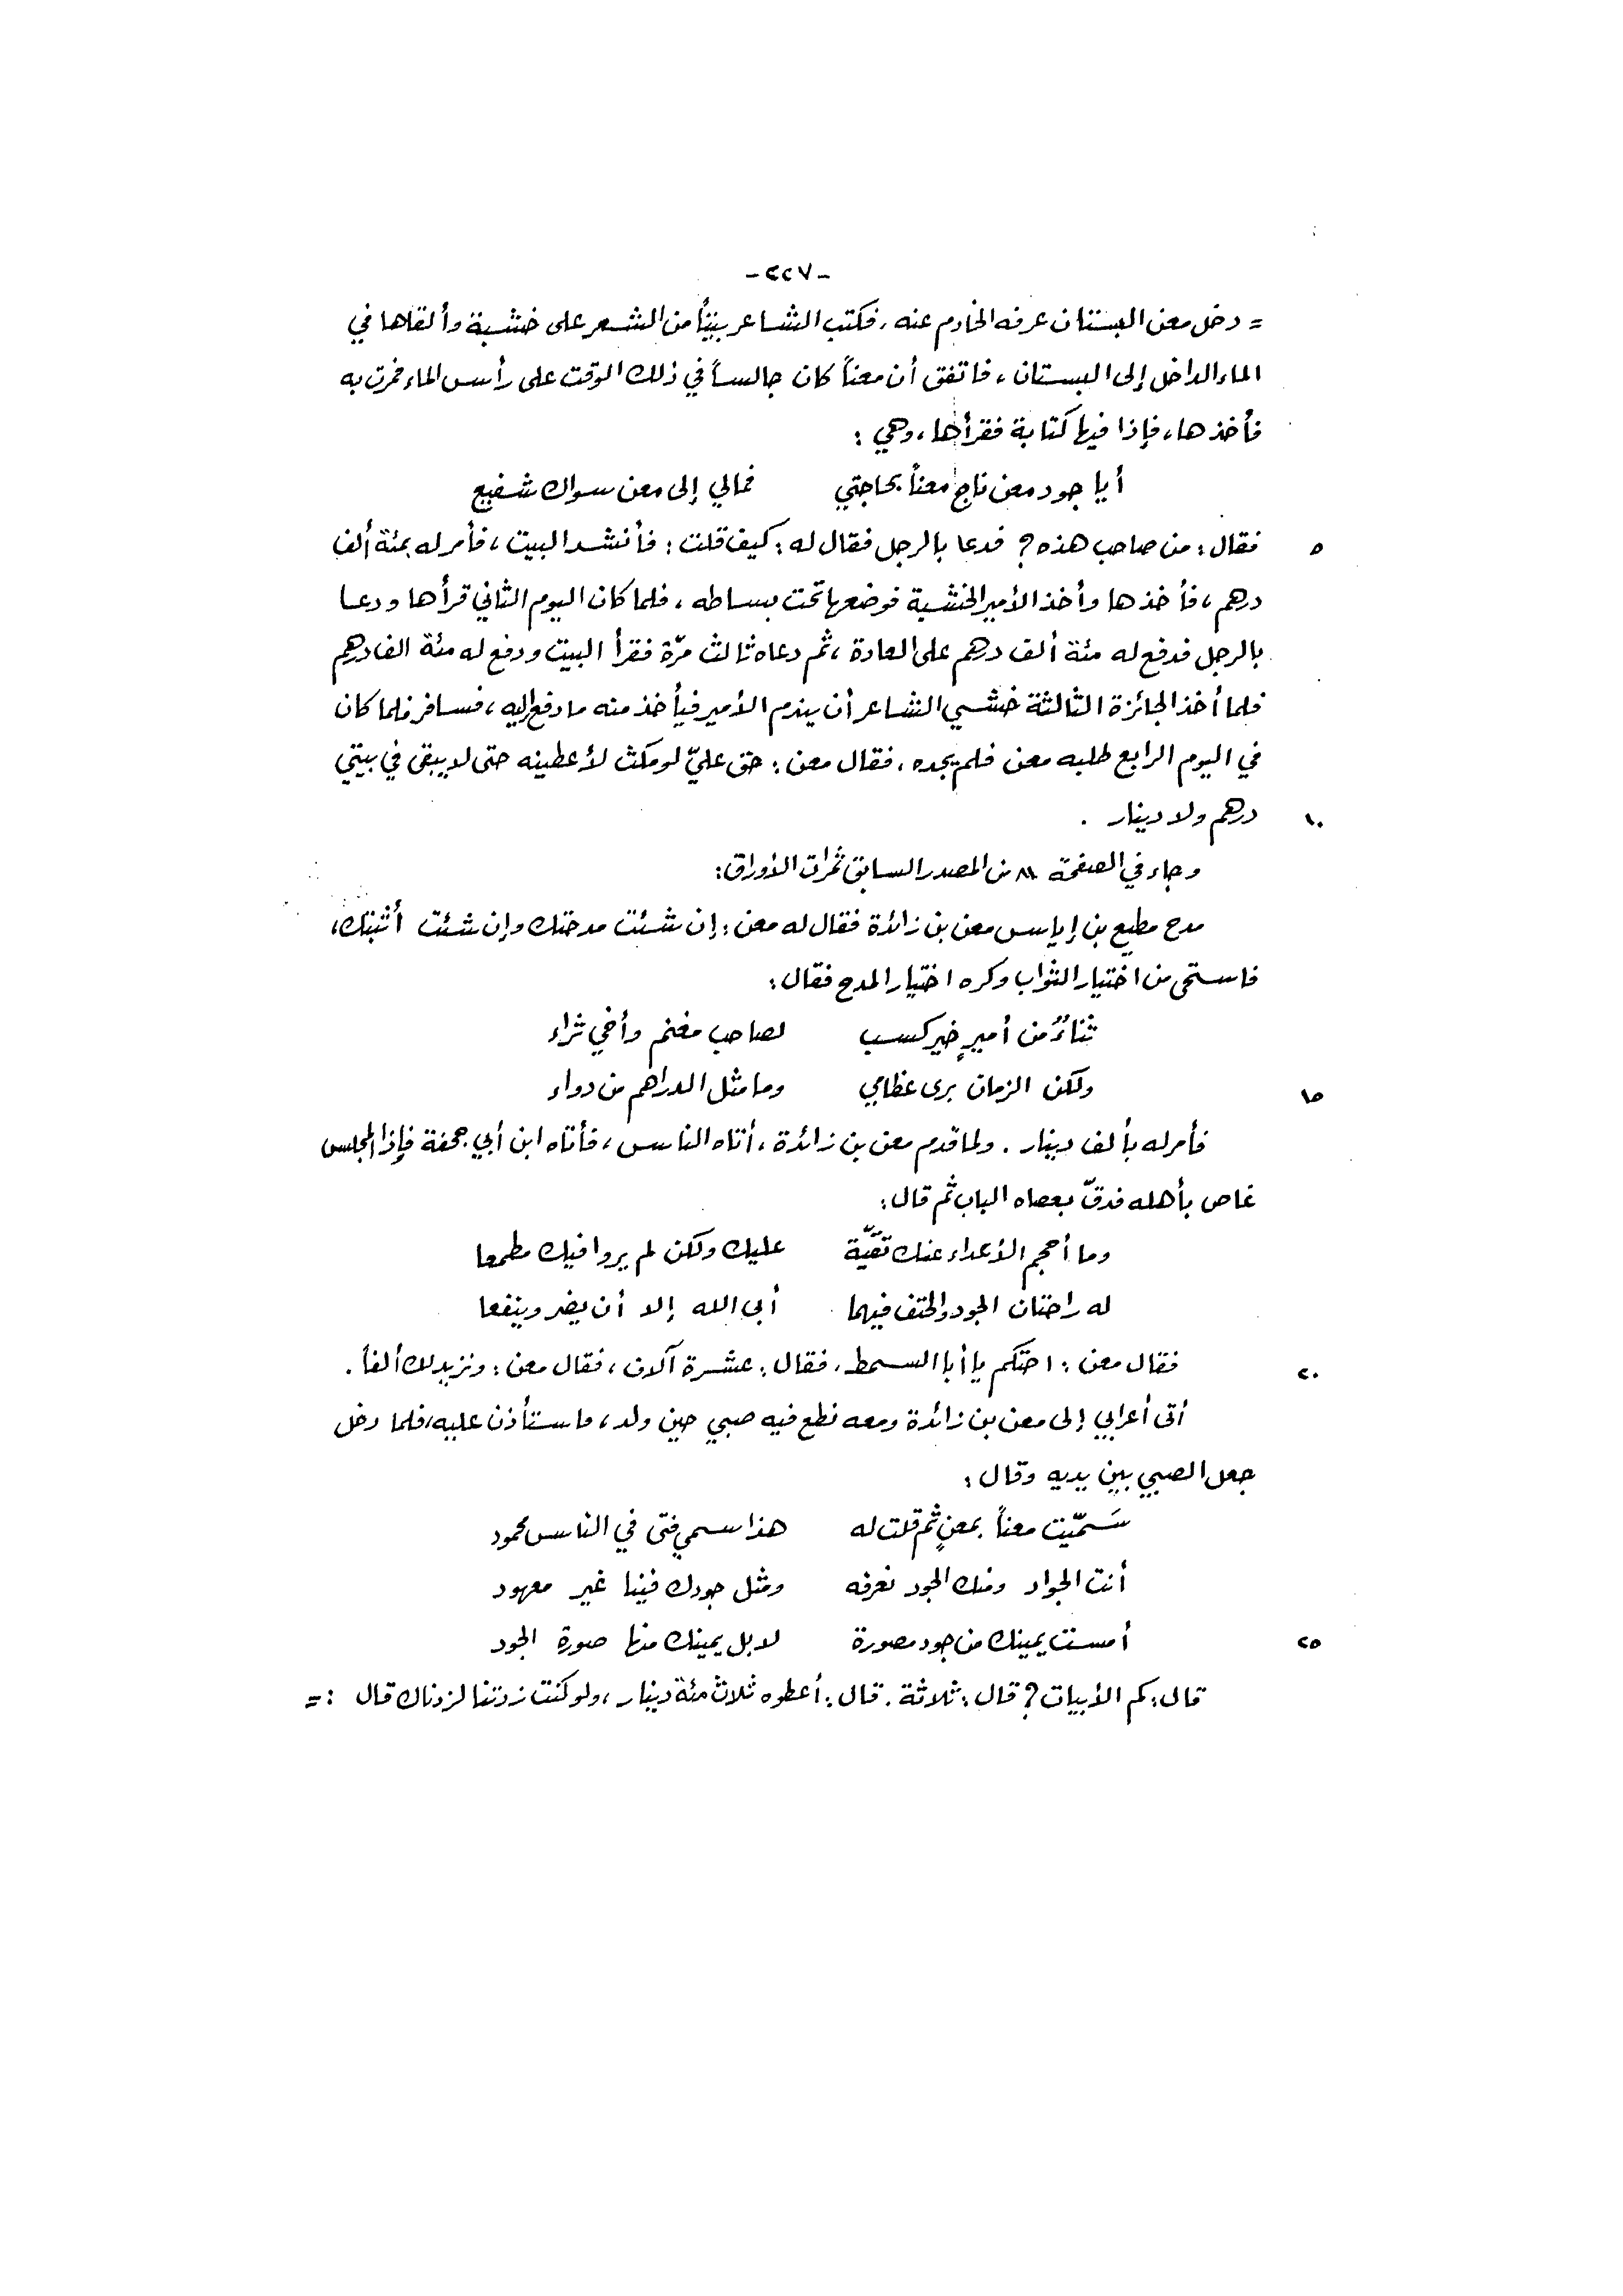 -٢٢٧-
= دخل معن البستان عرفه الخادم عنه، فكتب الشاعر بيتاً من الشعر على خشبة وألقاها في
الماء الداخل إلى البستان، فاتفق أن معناً كان جالساً في ذلك الوقت على رأس الماء فمرت به
فأخذها، فإذا فيها كتابة فقرأها، وهي:
أيا جود معن ناج معناً بحاجتي    فمالي إلى معن سواك شفيع
٥ فقال: من صاحب هذه؟ فدعا بالرجل فقال له: كيف قلت: فأنشد البيت، فأمر له بمئة ألف
درهم، فأخذها وأخذ الأمير الخشبة فوضعها تحت بساطه، فلما كان اليوم الثاني قرأها ودعا
بالرجل فدفع له مئة ألف درهم على العادة، ثم دعاه ثالث مرّة فقرأ البيت ودفع له مئة الف درهم
فلما أخذ الجائزة الثالثة خشي الشاعر أن يندم الأمير فيأخذ منه ما دفع إليه، فسافر فلما كان
في اليوم الرابع طلبه معن فلم يجده، فقال معن: حق عليّ لو مكث لأعطينه حتى لا يبقى في بيتي
١٠ درهم ولا دينار.
وجاء في الصفحة ٨١ من المصدر السابق ثمرات الأوراق:
مدح مطيع بن إياس معن بن زائدة فقال له معن: إن شئت مدحتك وإن شئت أثبتك،
فاستحى من اختيار الثواب وكره اختيار المدح فقال:
ثناءٌ من أميرٍ خير كسب    لصاحب مغنم وأخي ثراء
١٥ ولكن الزمان برى عظامي    وما مثل الدراهم من دواء
فأمر له بألف دينار. ولما قدم معن بن زائدة، أتاه الناس، فأتاه ابن أبي جحفة فإذا المجلس
غاص بأهله فدقّ بعصاه الباب ثم قال:
وما أحجم الأعداء عنك تقيّة    عليك ولكن لم يروا فيك مطمعا
له راحتان الجود والحتف فيهما    أبى الله إلا أن يضر وينفعا
٢٠ فقال معن: احتكم يا أبا السمط، فقال: عشرة آلاف، فقال معن: ونزيدك ألفاً.
أتى أعرابي إلى معن بن زائدة ومعه نطع فيه صبي حين ولد، فاستأذن عليه، فلما دخل
جعل الصبي بين يديه وقال:
سَمّيت معناً بمعنٍ ثم قلت له    هذا سمي فتى في الناس محمود
أنت الجواد ومنك الجود نعرفه    ومثل جودك فينا غير معهود
٢٥ أمست يمينك من جود مصورة    لا بل يمينك منها صورة الجود
قال: كم الأبيات؟ قال: ثلاثة. قال: أعطوه ثلاث مئة دينار، ولو كنت زدتنا لزدناك قال: =